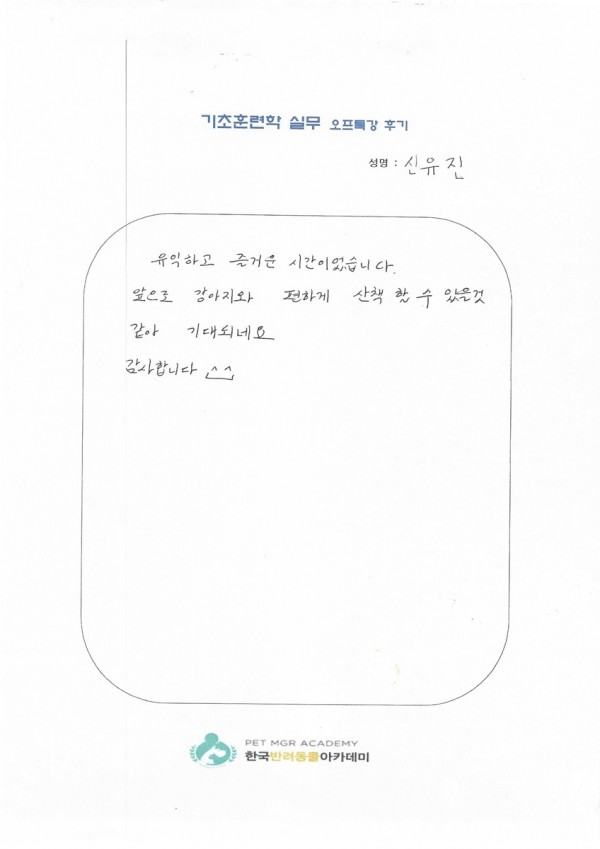 기초훈련학 실무 오프특강 후기
성명 : 신유진
유익하고 즐거운 시간이었습니다.
앞으로 강아지와 편하게 산책 할 수 있을것
같아 기대되네요
감사합니다 ^^
PET MGR ACADEMY
한국반려동물아카데미